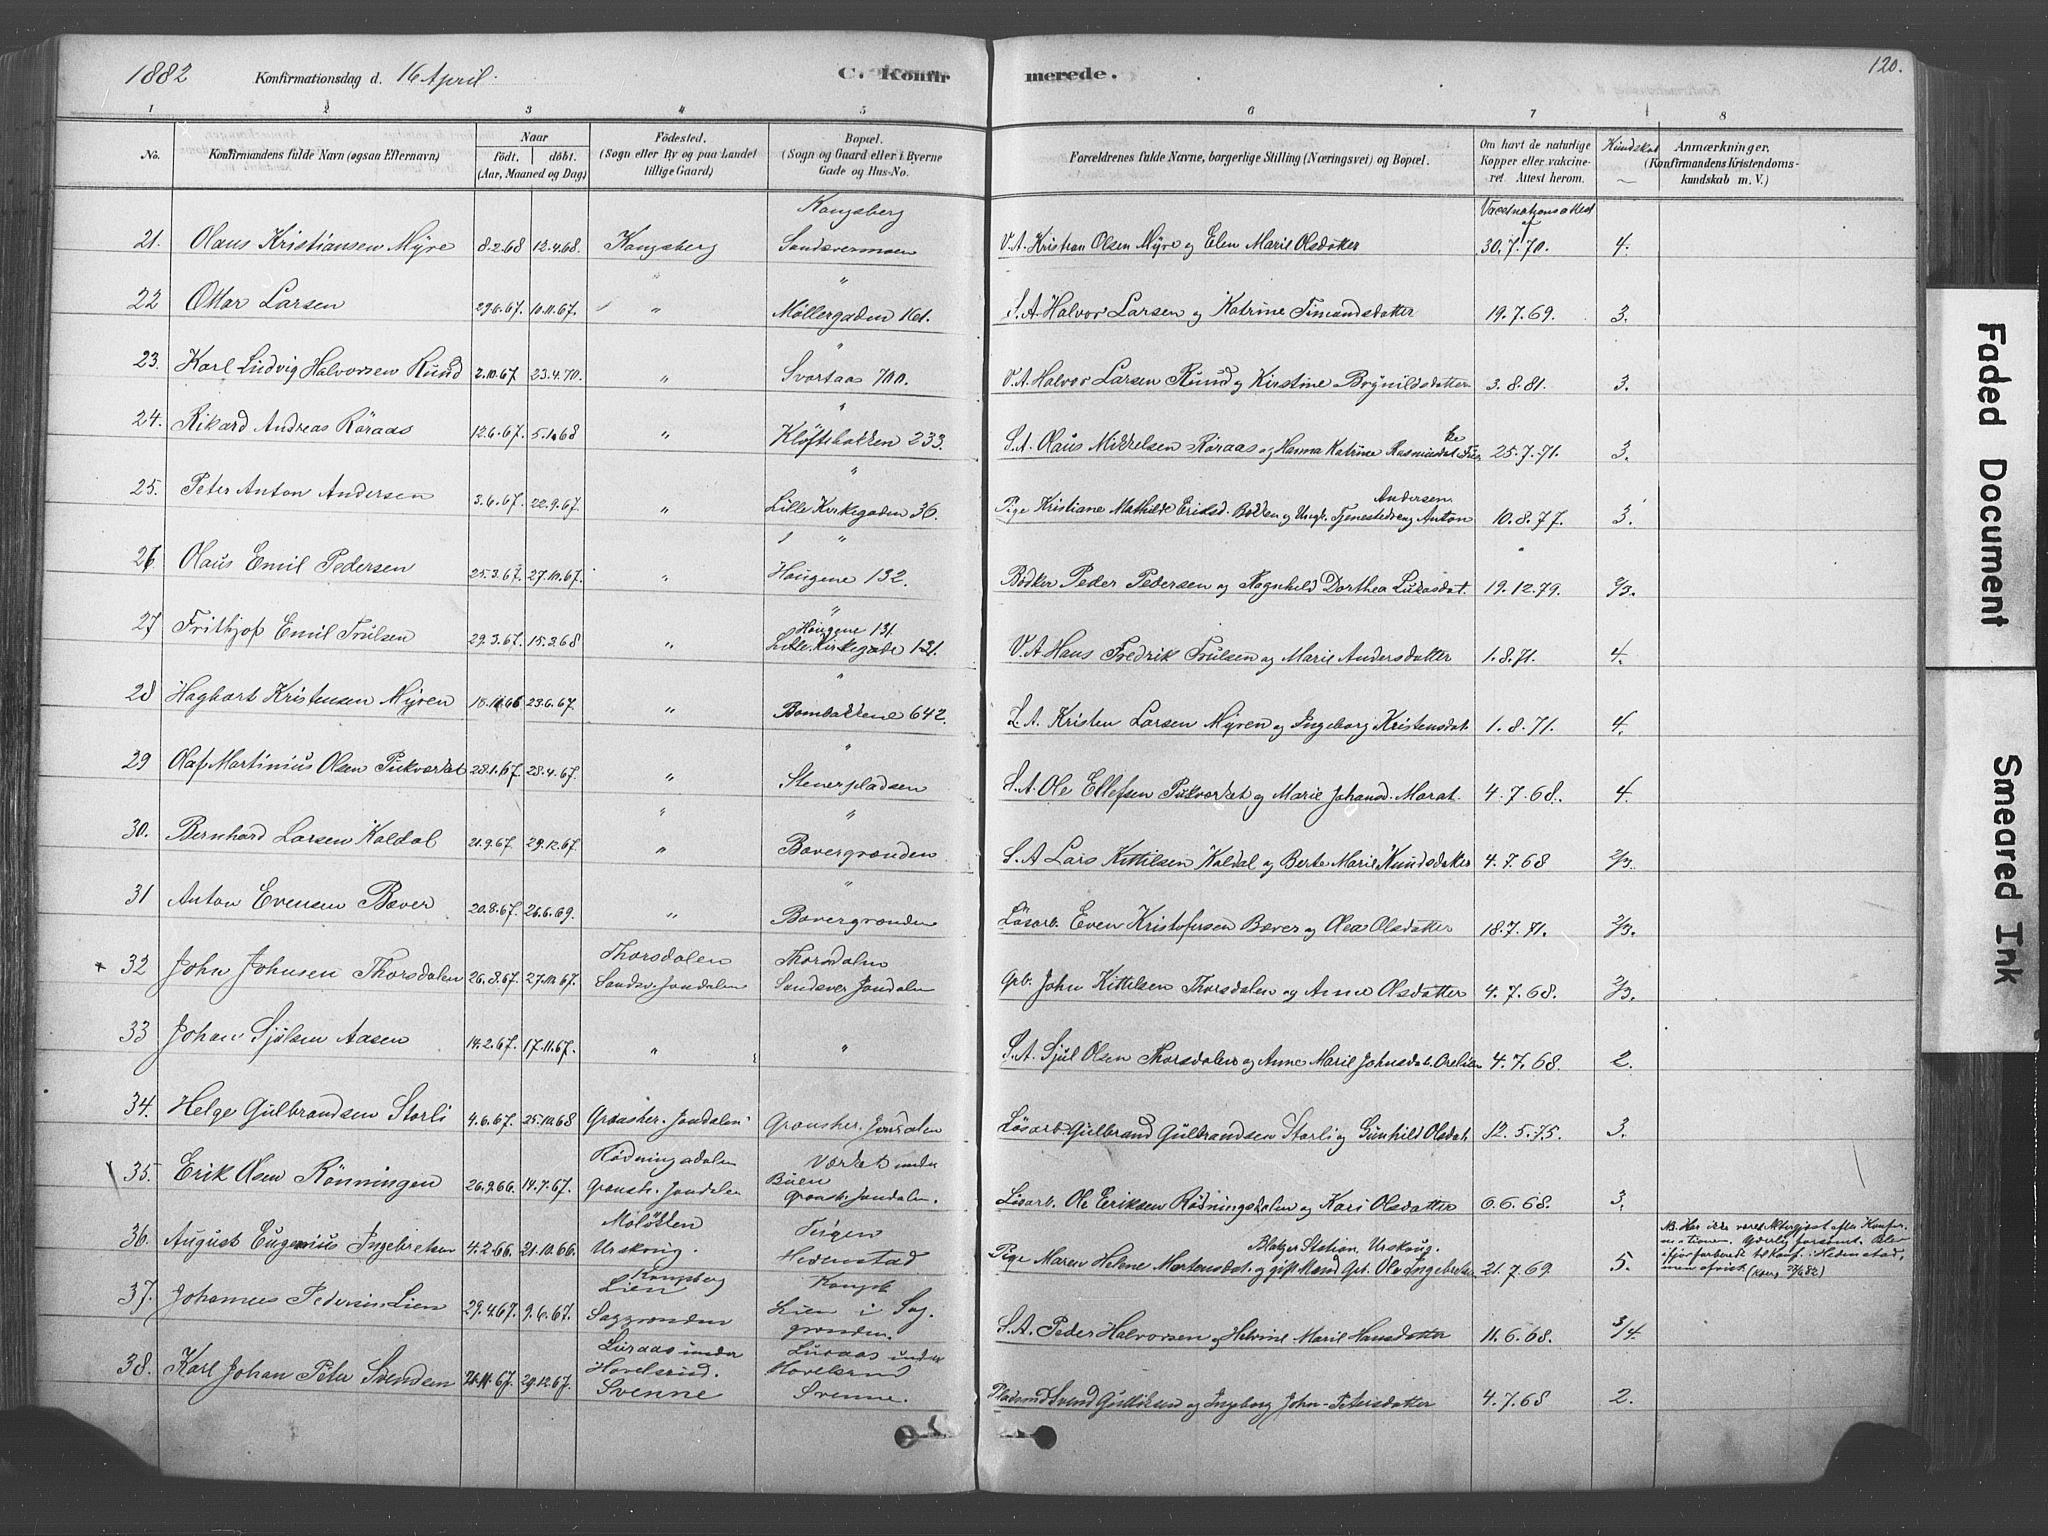 1882 Konfirmationsdag d. 16 April. C. Konfirmerede. 120.
1 2 3 4 5 6 7 8
No. Konfirmandens fulde Navn (ogsaa Efternavn) Naar født. døbt. (Aar, Maaned og Dag) Fødested. (Sogn eller By og paa Landet tillige Gaard) Bopæl. (Sogn og Gaard eller i Byerne Gade og Hus-No. Forældrenes fulde Navne, borgerlige Stilling (Næringsvei) og Bopæl. Om havt de naturlige Kopper eller vakcineret. Attest herom. Kundskab Anmærkninger, (Konfirmandens Kristendomskundskab m. V.)
Kongsberg Vaccinationsattest
21. Olaus Kristiansen Myre 8.2.68 12.4.68. Kongsberg Sandsværmoen V.A. Kristian Olsen Myre og Elen Marie Olsdatter 30.7.70. 4.
22 Ottar Larsen 29.6.67. 10.11.67. " " Møllergaden 161. S.A. Halvor Larsen og Katrine Timandsdatter 19.7.69. 3.
23. Karl Ludvig Halvorsen Rund 2.10.67. 23.4.70. " " Svartaas 700. V.A. Halvor Larsen Rund og Kirstine Brynildsdatter 3.8.81. 3.
24. Rikard Andreas Röraas 12.6.67. 5.1.68 " " Kløftebakken 233. S.A. Olaus Mikkelsen Röraas og Hanna Katrine Rasmusdat. 25.7.71. 3.
25. Peter Anton Andersen 3.6.67. 22.9.67. " " Lille Kirkegaden 36. Pige Kristiane Mathilde Eriksd. Bakken og Ungk. Tjenestedreng Anton Andersen. 10.8.77. 3.
26 Olaus Emil Pedersen 25.3.67. 27.10.67. " " Haugene 132. Bødker Peder Pedersen og Ragnhild Dorthea Lukasdat. 19.12.79. 2/3.
27 Frithjof Emil Trulsen 29.3.67. 15.3.68 " " Haugene 131. Lille Kirkegade 121. V.A Hans Fredrik Trulsen og Marie Andersdatter 1.8.71. 4.
28 Hagbart Kristensen Myren 23.6.67. " " Bombakkene 642. Kristen Larsen Myren og Ingeborg Kristensdat. 1.8.71. 4.
29 Olaf Martinius Olsen Pukverket 28.1.67. 28.4.67. " " Stenerpladsen S.A. Ole Ellefsen Pukverket og Marie Johansd. Marat. 4.7.68. 4.
30. Bernhard Larsen Kaldal 21.9.67. 29.12.67. " " Bævergrænden. S.A Lars Kittilsen Kaldal og Berte Marie Knudsdatter 4.7.68 2/3.
31 Anton Evensen Bæver 20.8.67. 26.6.69. " " Bævergrænden Løsarb. Even Kristofersen Bæver og Olea Olsdatter 18.7.71. 2/3.
32 John Johnsen Thorsdalen 26.8.67. 27.10.67. Thorsdalen Sandsv. Jondalen Thorsdalen Sandsver Jondalen Gpb. John Kittelsen Thorsdalen og Anne Olsdatter 4.7.68. 2/3.
33 Johan Sjulsen Aasen 14.2.67. 17.11.67. " " S.A. Sjul Olsen Thorsdalen og Anne Marie Johnsdat. 4.7.68. 2.
34. Helge Gulbrandsen Storli 4.6.67. 25.10.68 Gransher. Jondalen Gransher. Jondalen Løsarb. Gulbrand Gulbrandsen Storli og Gunhild Olsdat. 12.5.75. 3.
35. Erik Olsen Rønningen 26.9.66. 14.7.67. Rødningsdalen Gransh. Jondalen Værket under Buen Gransh. Jondalen. Løsarb. Ole Eriksen Rødningsdalen og Kari Olsdatter 6.6.68. 3.
36. August Eugenius Ingebretsen 4.2.66. 21.10.66. Urskoug. Hedenstad Pige Maren Helene Mortensdat. og gift Mand Gpt. Ole Ingebretsen Blaker Station Urskoug. 21.7.69 5. NB. Har ikke været Altergjæst efter Konfirmationen.
37. Johannes Pedersen Lien 29.4.67. 9.6.67. Kongsberg Lien Saggrenden Kongsb. Lien i Saggrenden. S.A. Peder Halvorsen og Helvine Marie Hansdatter 11.6.68. 3/4.
38. Karl Johan Peter Svendsen 29.12.67. Luraas under Havelsrud. Svenne Luraas under Havelsrud Svenne. Pladsmd. Svend Gulliksen og Ingeborg John-Petersdatter 4.7.68 2.
Faded Document
Smeared Ink